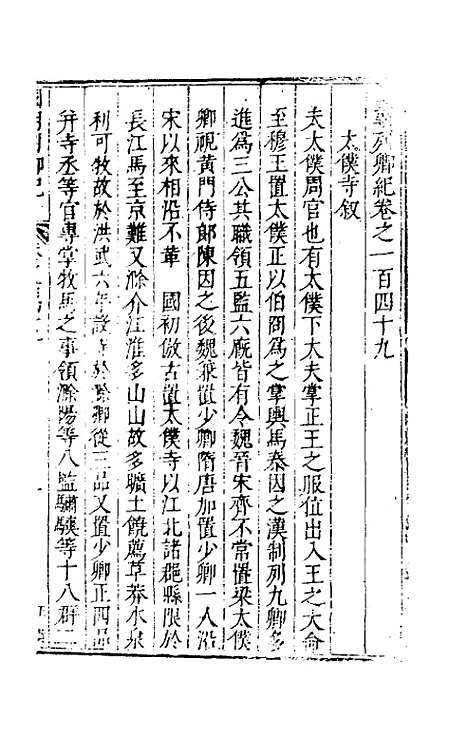 列卿紀卷之一百四十九
太僕寺叙
夫太僕周官也有太僕下大夫掌正王之服位出入王之大命
至穆王置太僕正以伯冏爲之掌輿馬秦因之漢制列九卿多
進爲三公其職領五監六厩皆有令魏晉宋齊不常置梁太僕
卿視黃門侍郎陳因之後魏兼置少卿隋唐加置少卿一人沿
宋以來相沿不革 國初倣古置太僕寺以江北諸郡縣限於
長江馬至京難又滁介江淮多山山故多曠土饒薦草莽水泉
利可牧故於洪武六年設寺於滁卿從三品又置少卿正四品
并寺丞等官專掌牧馬之事領滁陽等八監驌驥等十八群二